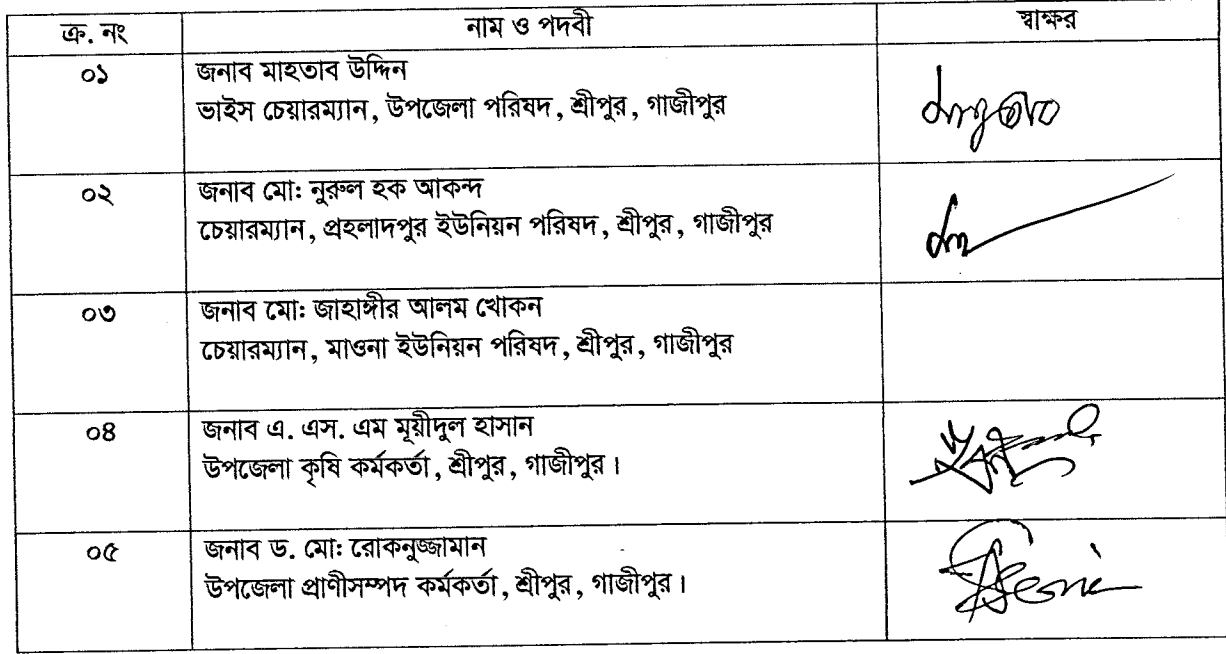 ক্র. নং নাম ও পদবী স্বাক্ষর
০১ জনাব মাহতাব উদ্দিন
ভাইস চেয়ারম্যান, উপজেলা পরিষদ, শ্রীপুর, গাজীপুর
০২ জনাব মো: নুরুল হক আকন্দ
চেয়ারম্যান, প্রহলাদপুর ইউনিয়ন পরিষদ, শ্রীপুর, গাজীপুর
০৩ জনাব মো: জাহাঙ্গীর আলম খোকন
চেয়ারম্যান, মাওনা ইউনিয়ন পরিষদ, শ্রীপুর, গাজীপুর
০৪ জনাব এ. এস. এম মূয়ীদুল হাসান
উপজেলা কৃষি কর্মকর্তা, শ্রীপুর, গাজীপুর।
০৫ জনাব ড. মো: রোকনুজ্জামান
উপজেলা প্রাণীসম্পদ কর্মকর্তা, শ্রীপুর, গাজীপুর।